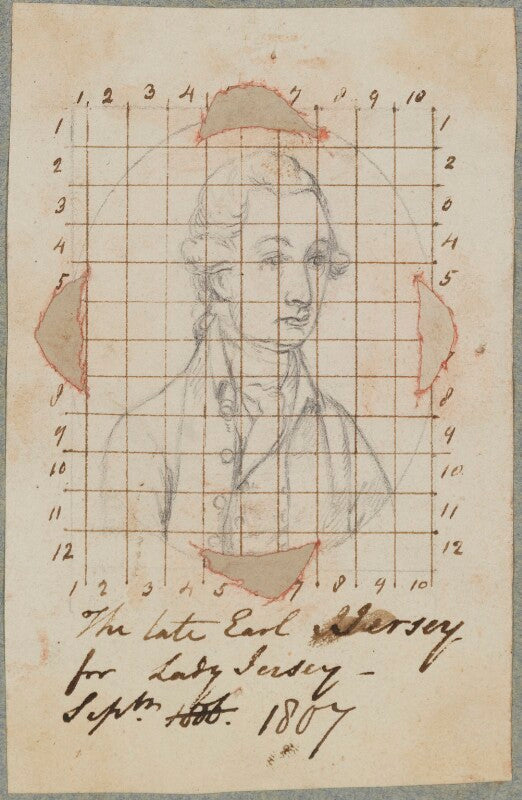 1 2 3 4 7 8 9 10
1 1
2 2
3 3
4 4
5 5
7
8 8
9 9
10 10
11 11
12 12
1 2 3 4 5 7 8 9 10
The late Earl Jersey
for Lady Jersey -
Septr 1806. 1807